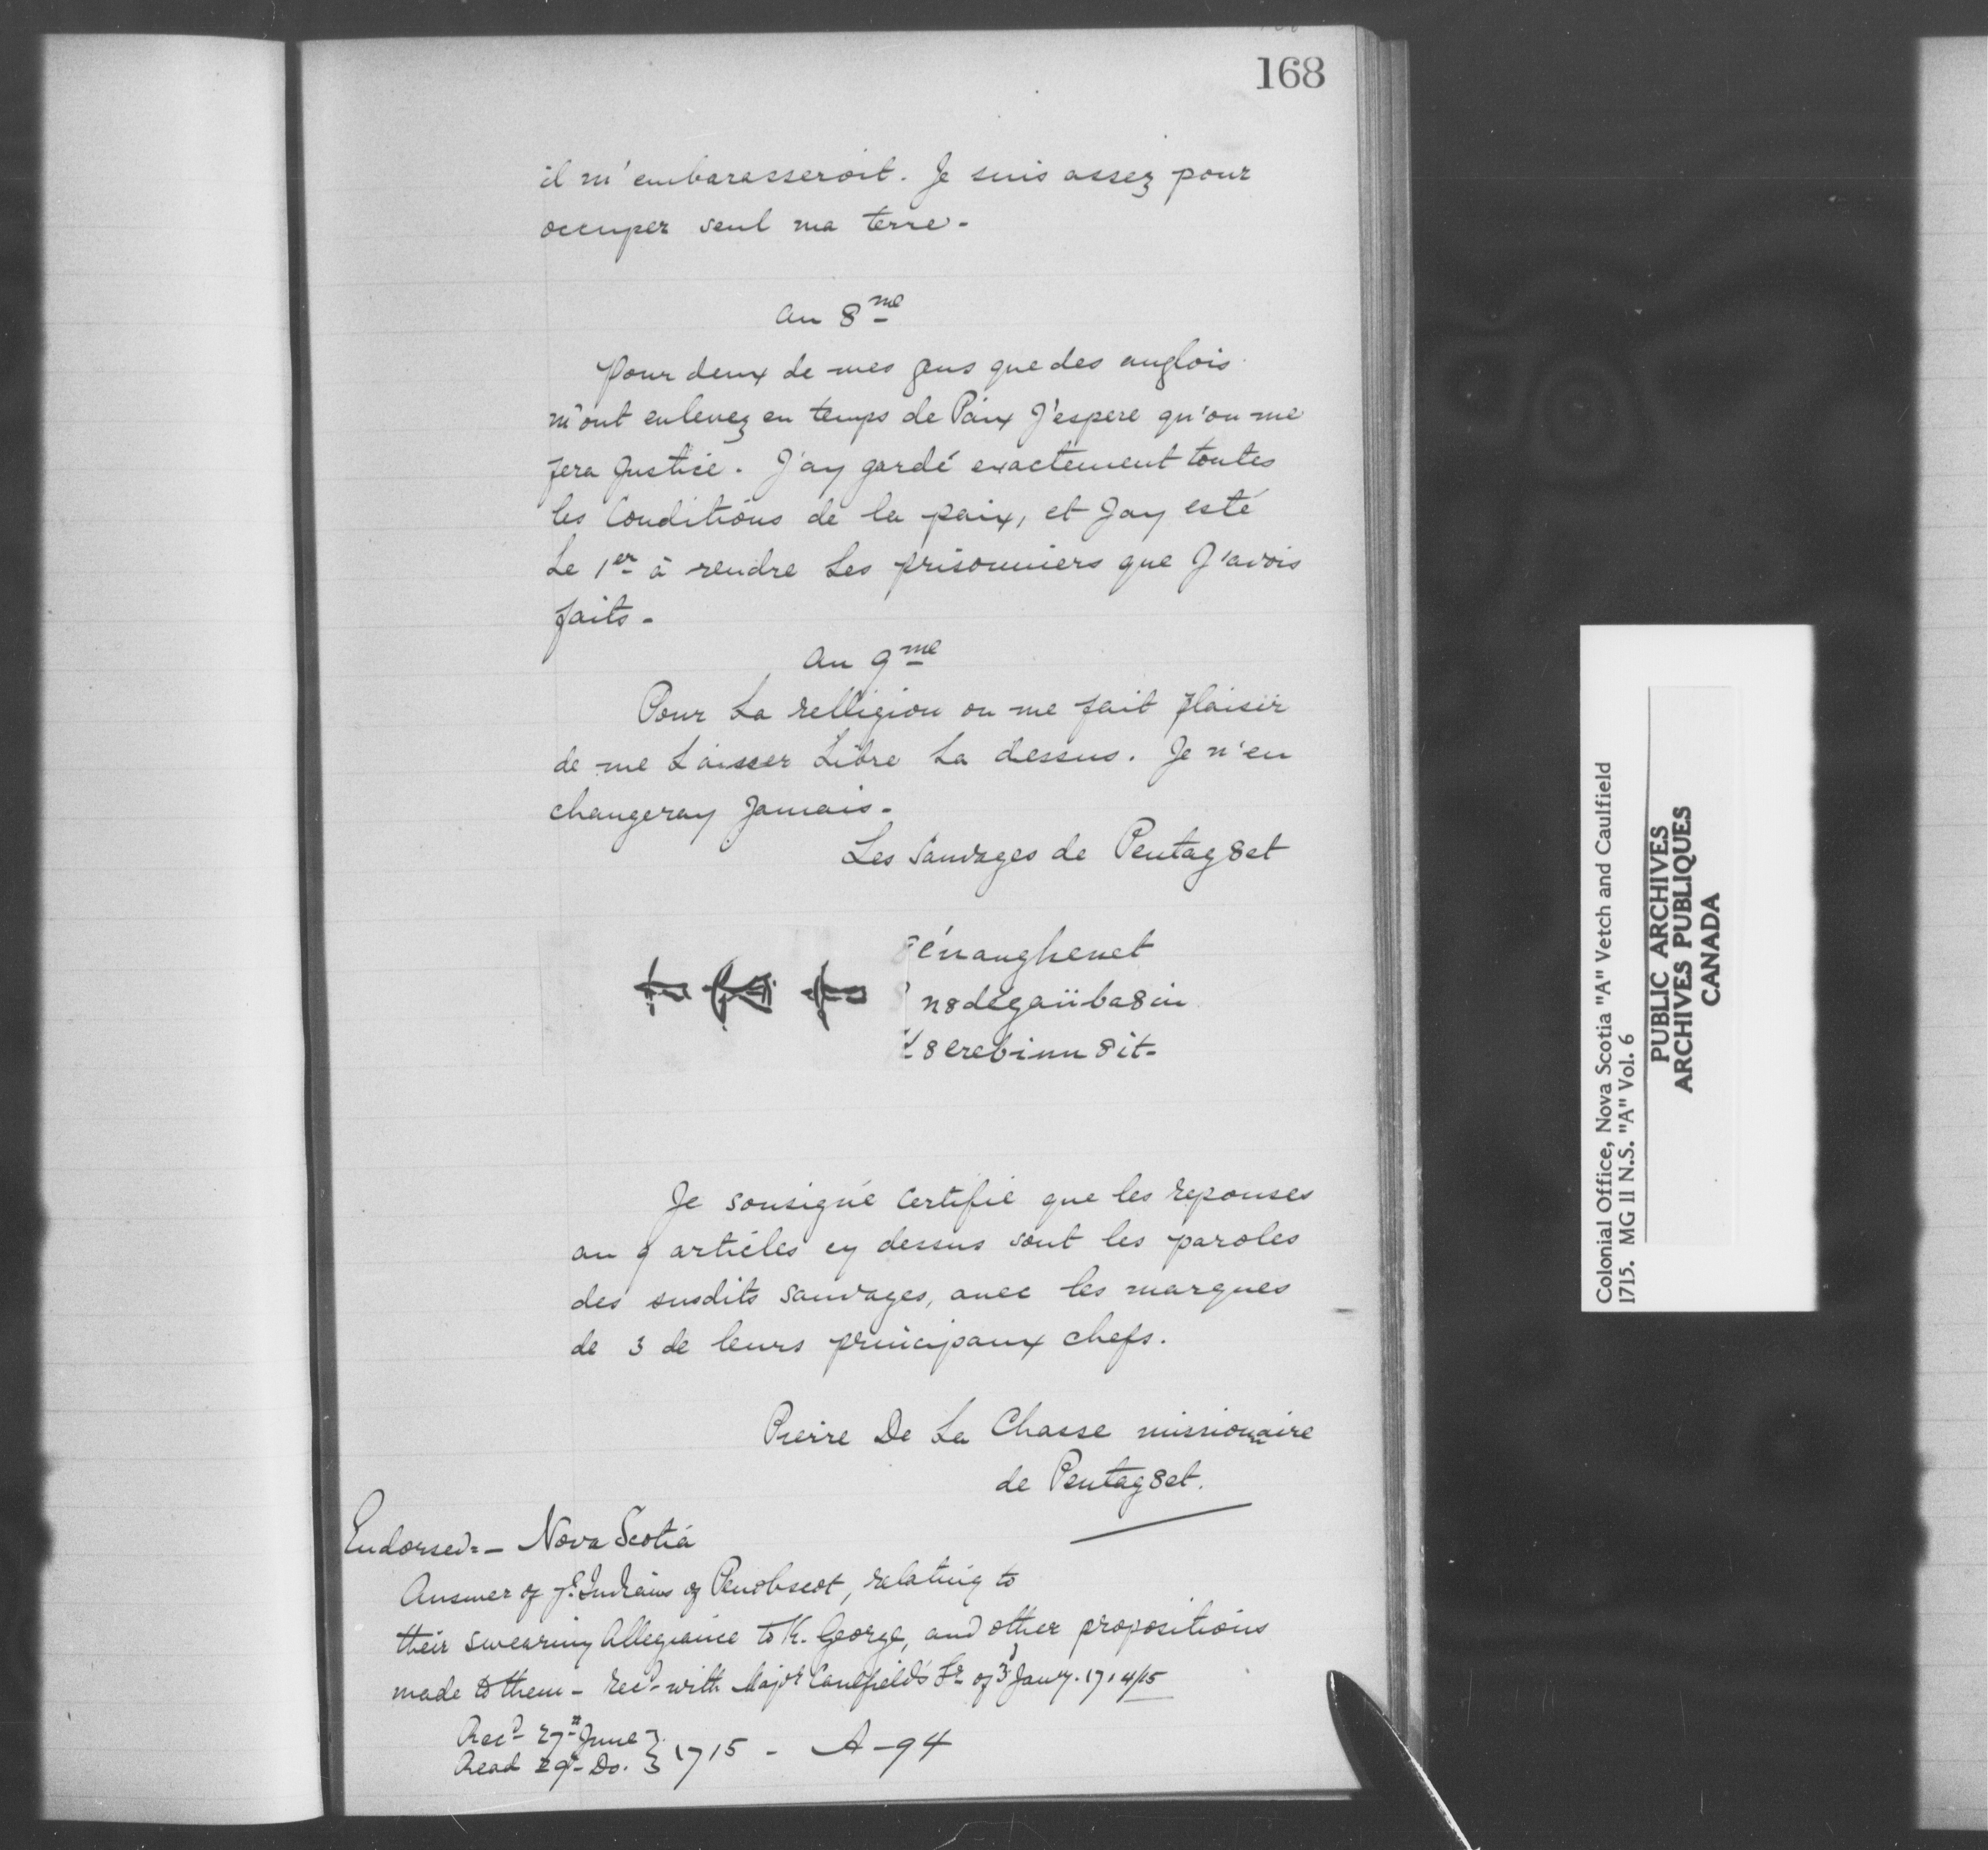 168
il m'embarasseroit. Je suis assez pour
occuper seul ma terre.
au 8me
Pour deux de mes gens que des anglois
m'ont enlevez en temps de Paix J'espere qu'on me
fera Justice. J'ay gardé exactement toutes
les Conditions de la paix, et Jay esté
Le 1er à rendre Les prisonniers que J'avois
faits.
au 9me
Pour La relligion on me fait plaisir
de me Laisser Libre La dessus. Je n'en
changeray Jamais.
Les Sauvages de Pentag8et
énanghenet
n8degaiiba8in
8erebinn8it.
Je sousigné Certifie que les reponses
au 9 articles cy dessus sont les paroles
des susdits Sauvages, avec les marques
de 3 de leurs principaux chefs.
Pierre De La Chasse missionaire
de Pentag8et.
Endorsed:- Nova Scotia
Answer of ye Indians of Penobscot, relating to
their swearing Allegiance to K. George, and other propositions
made to them - recd with Majr Caulfield's Lr of 3d Jany. 1714/15
Recd 27th June }
Read 29th Do. } 1715 - A-94
Colonial Office, Nova Scotia "A" Vetch and Caulfield
1715. MG II N.S. "A" Vol. 6
PUBLIC ARCHIVES
ARCHIVES PUBLIQUES
CANADA